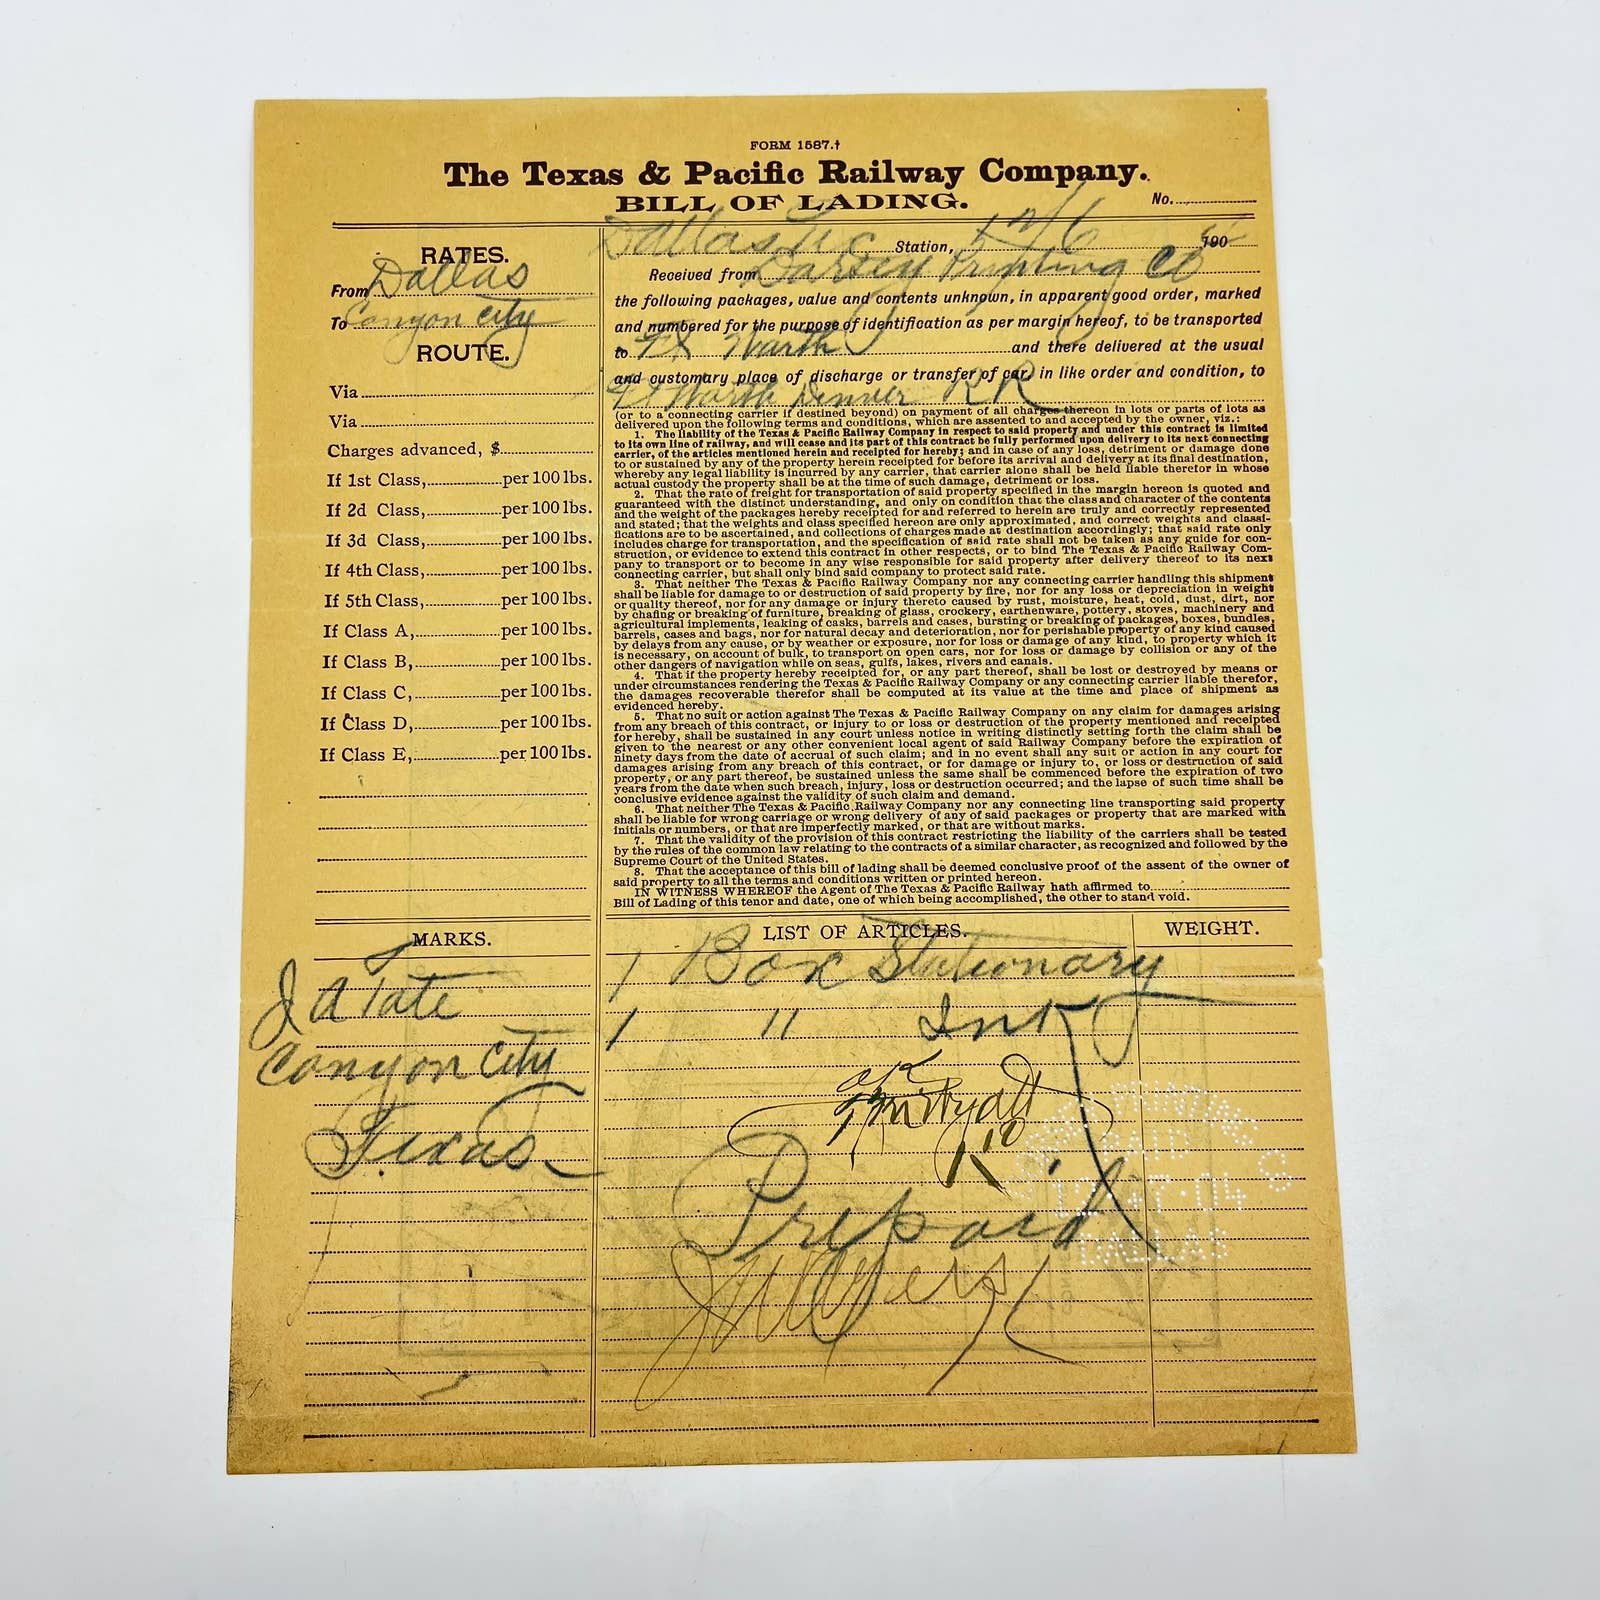 FORM 1587.†
The Texas & Pacific Railway Company.
BILL OF LADING.
No.
RATES.
From Dallas
To Canyon City
ROUTE.
Via
Via
Charges advanced, $
If 1st Class, per 100 lbs.
If 2d Class, per 100 lbs.
If 3d Class, per 100 lbs.
If 4th Class, per 100 lbs.
If 5th Class, per 100 lbs.
If Class A, per 100 lbs.
If Class B, per 100 lbs.
If Class C, per 100 lbs.
If Class D, per 100 lbs.
If Class E, per 100 lbs.
Dallas Tex Station, 12/6 190
Received from Dorsey Printing Co
the following packages, value and contents unknown, in apparent good order, marked
and numbered for the purpose of identification as per margin hereof, to be transported
to Ft Worth and there delivered at the usual
and customary place of discharge or transfer of car, in like order and condition, to
Ft Worth Denver RR
(or to a connecting carrier if destined beyond) on payment of all charges thereon in lots or parts of lots as
delivered upon the following terms and conditions, which are assented to and accepted by the owner, viz.:
1. The liability of the Texas & Pacific Railway Company in respect to said property and under this contract is limited
to its own line of railway, and will cease and its part of this contract be fully performed upon delivery to its next connecting
carrier, of the articles mentioned herein and receipted for hereby; and in case of any loss, detriment or damage done
to or sustained by any of the property herein receipted for before its arrival and delivery at its final destination,
whereby any legal liability is incurred by any carrier, that carrier alone shall be held liable therefor in whose
actual custody the property shall be at the time of such damage, detriment or loss.
2. That the rate of freight for transportation of said property specified in the margin hereon is quoted and
guaranteed with the distinct understanding, and only on condition that the class and character of the contents
and the weight of the packages hereby receipted for and referred to herein are truly and correctly represented
and stated; that the weights and class specified hereon are only approximated, and correct weights and classi-
fications are to be ascertained, and collections of charges made at destination accordingly; that said rate only
includes charge for transportation, and the specification of said rate shall not be taken as any guide for con-
struction, or evidence to extend this contract in other respects, or to bind The Texas & Pacific Railway Com-
pany to transport or to become in any wise responsible for said property after delivery thereof to its next
connecting carrier, but shall only bind said company to protect said rate.
3. That neither The Texas & Pacific Railway Company nor any connecting carrier handling this shipment
shall be liable for damage to or destruction of said property by fire, nor for any loss or depreciation in weight
or quality thereof, nor for any damage or injury thereto caused by rust, moisture, heat, cold, dust, dirt, nor
by chafing or breaking of furniture, breaking of glass, crockery, earthenware, pottery, stoves, machinery and
agricultural implements, leaking of casks, barrels and cases, bursting or breaking of packages, boxes, bundles,
barrels, cases and bags, nor for natural decay and deterioration, nor for perishable property of any kind caused
by delays from any cause, or by weather or exposure, nor for loss or damage of any kind, to property which it
is necessary, on account of bulk, to transport on open cars, nor for loss or damage by collision or any of the
other dangers of navigation while on seas, gulfs, lakes, rivers and canals.
4. That if the property hereby receipted for, or any part thereof, shall be lost or destroyed by means or
under circumstances rendering the Texas & Pacific Railway Company or any connecting carrier liable therefor,
the damages recoverable therefor shall be computed at its value at the time and place of shipment as
evidenced hereby.
5. That no suit or action against The Texas & Pacific Railway Company on any claim for damages arising
from any breach of this contract, or injury to or loss or destruction of the property mentioned and receipted
for hereby, shall be sustained in any court unless notice in writing distinctly setting forth the claim shall be
given to the nearest or any other convenient local agent of said Railway Company before the expiration of
ninety days from the date of accrual of such claim; and in no event shall any suit or action in any court for
damages arising from any breach of this contract, or for damage or injury to, or loss or destruction of said
property, or any part thereof, be sustained unless the same shall be commenced before the expiration of two
years from the date when such breach, injury, loss or destruction occurred; and the lapse of such time shall be
conclusive evidence against the validity of such claim and demand.
6. That neither The Texas & Pacific Railway Company nor any connecting line transporting said property
shall be liable for wrong carriage or wrong delivery of any of said packages or property that are marked with
initials or numbers, or that are imperfectly marked, or that are without marks.
7. That the validity of the provision of this contract restricting the liability of the carriers shall be tested
by the rules of the common law relating to the contracts of a similar character, as recognized and followed by the
Supreme Court of the United States.
8. That the acceptance of this bill of lading shall be deemed conclusive proof of the assent of the owner of
said property to all the terms and conditions written or printed hereon.
IN WITNESS WHEREOF the Agent of The Texas & Pacific Railway hath affirmed to
Bill of Lading of this tenor and date, one of which being accomplished, the other to stand void.
MARKS.
LIST OF ARTICLES.
WEIGHT.
J A Tate
Canyon City
Texas
1 Box Stationary
1 " Ink
OK
Prepaid
PRINTING
PAID
12·17·04
DALLAS